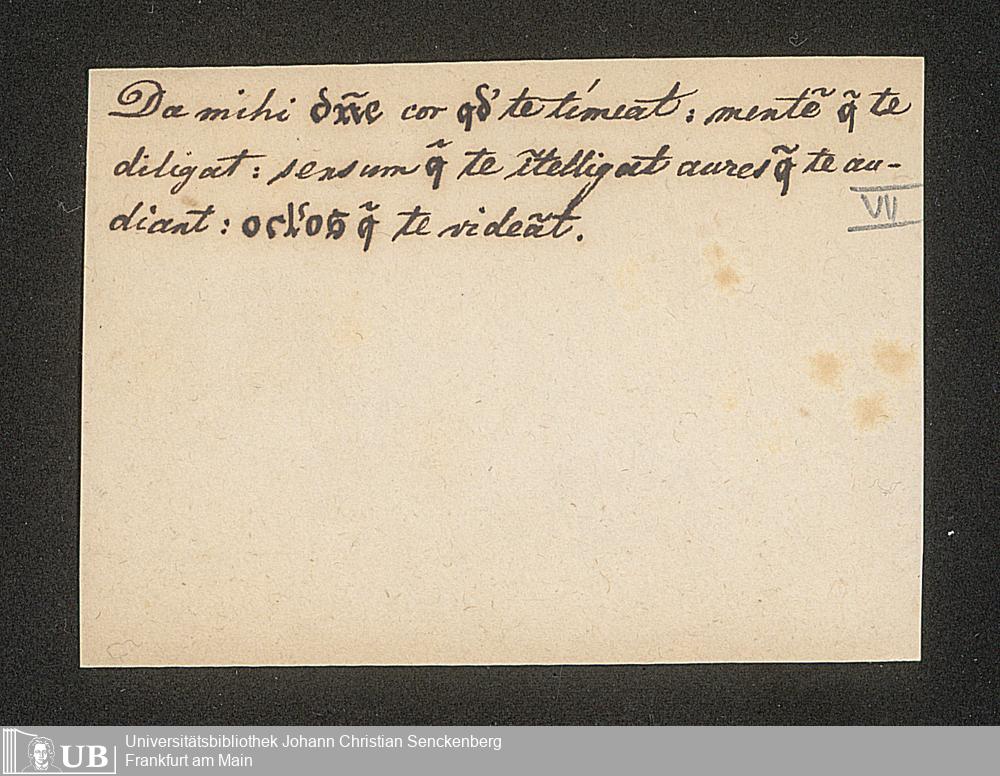 Da mihi dñe cor qđ te timeat : mentẽ q̃ te
diligat : sensum q̃ te ĩtelligat aures q̃ te au-
diant : oclʼos q̃ te videãt.
VII
UB
Universitätsbibliothek Johann Christian Senckenberg
Frankfurt am Main